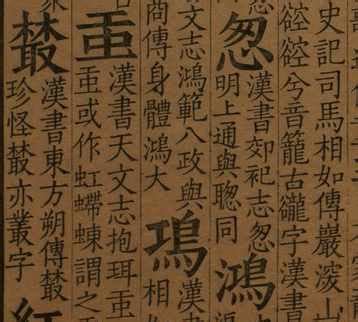 史記司馬相如傳巖㴱山
谾谾兮音籠古豅字漢書
怱
漢書郊祀志怱
明上通與聰同
鴻
文志鴻範八政與
商傳身體鴻大
漢書
相如
漢書天文志抱珥
或作虹螮蝀謂之
漢書東方朔傳
珍怪亦叢字